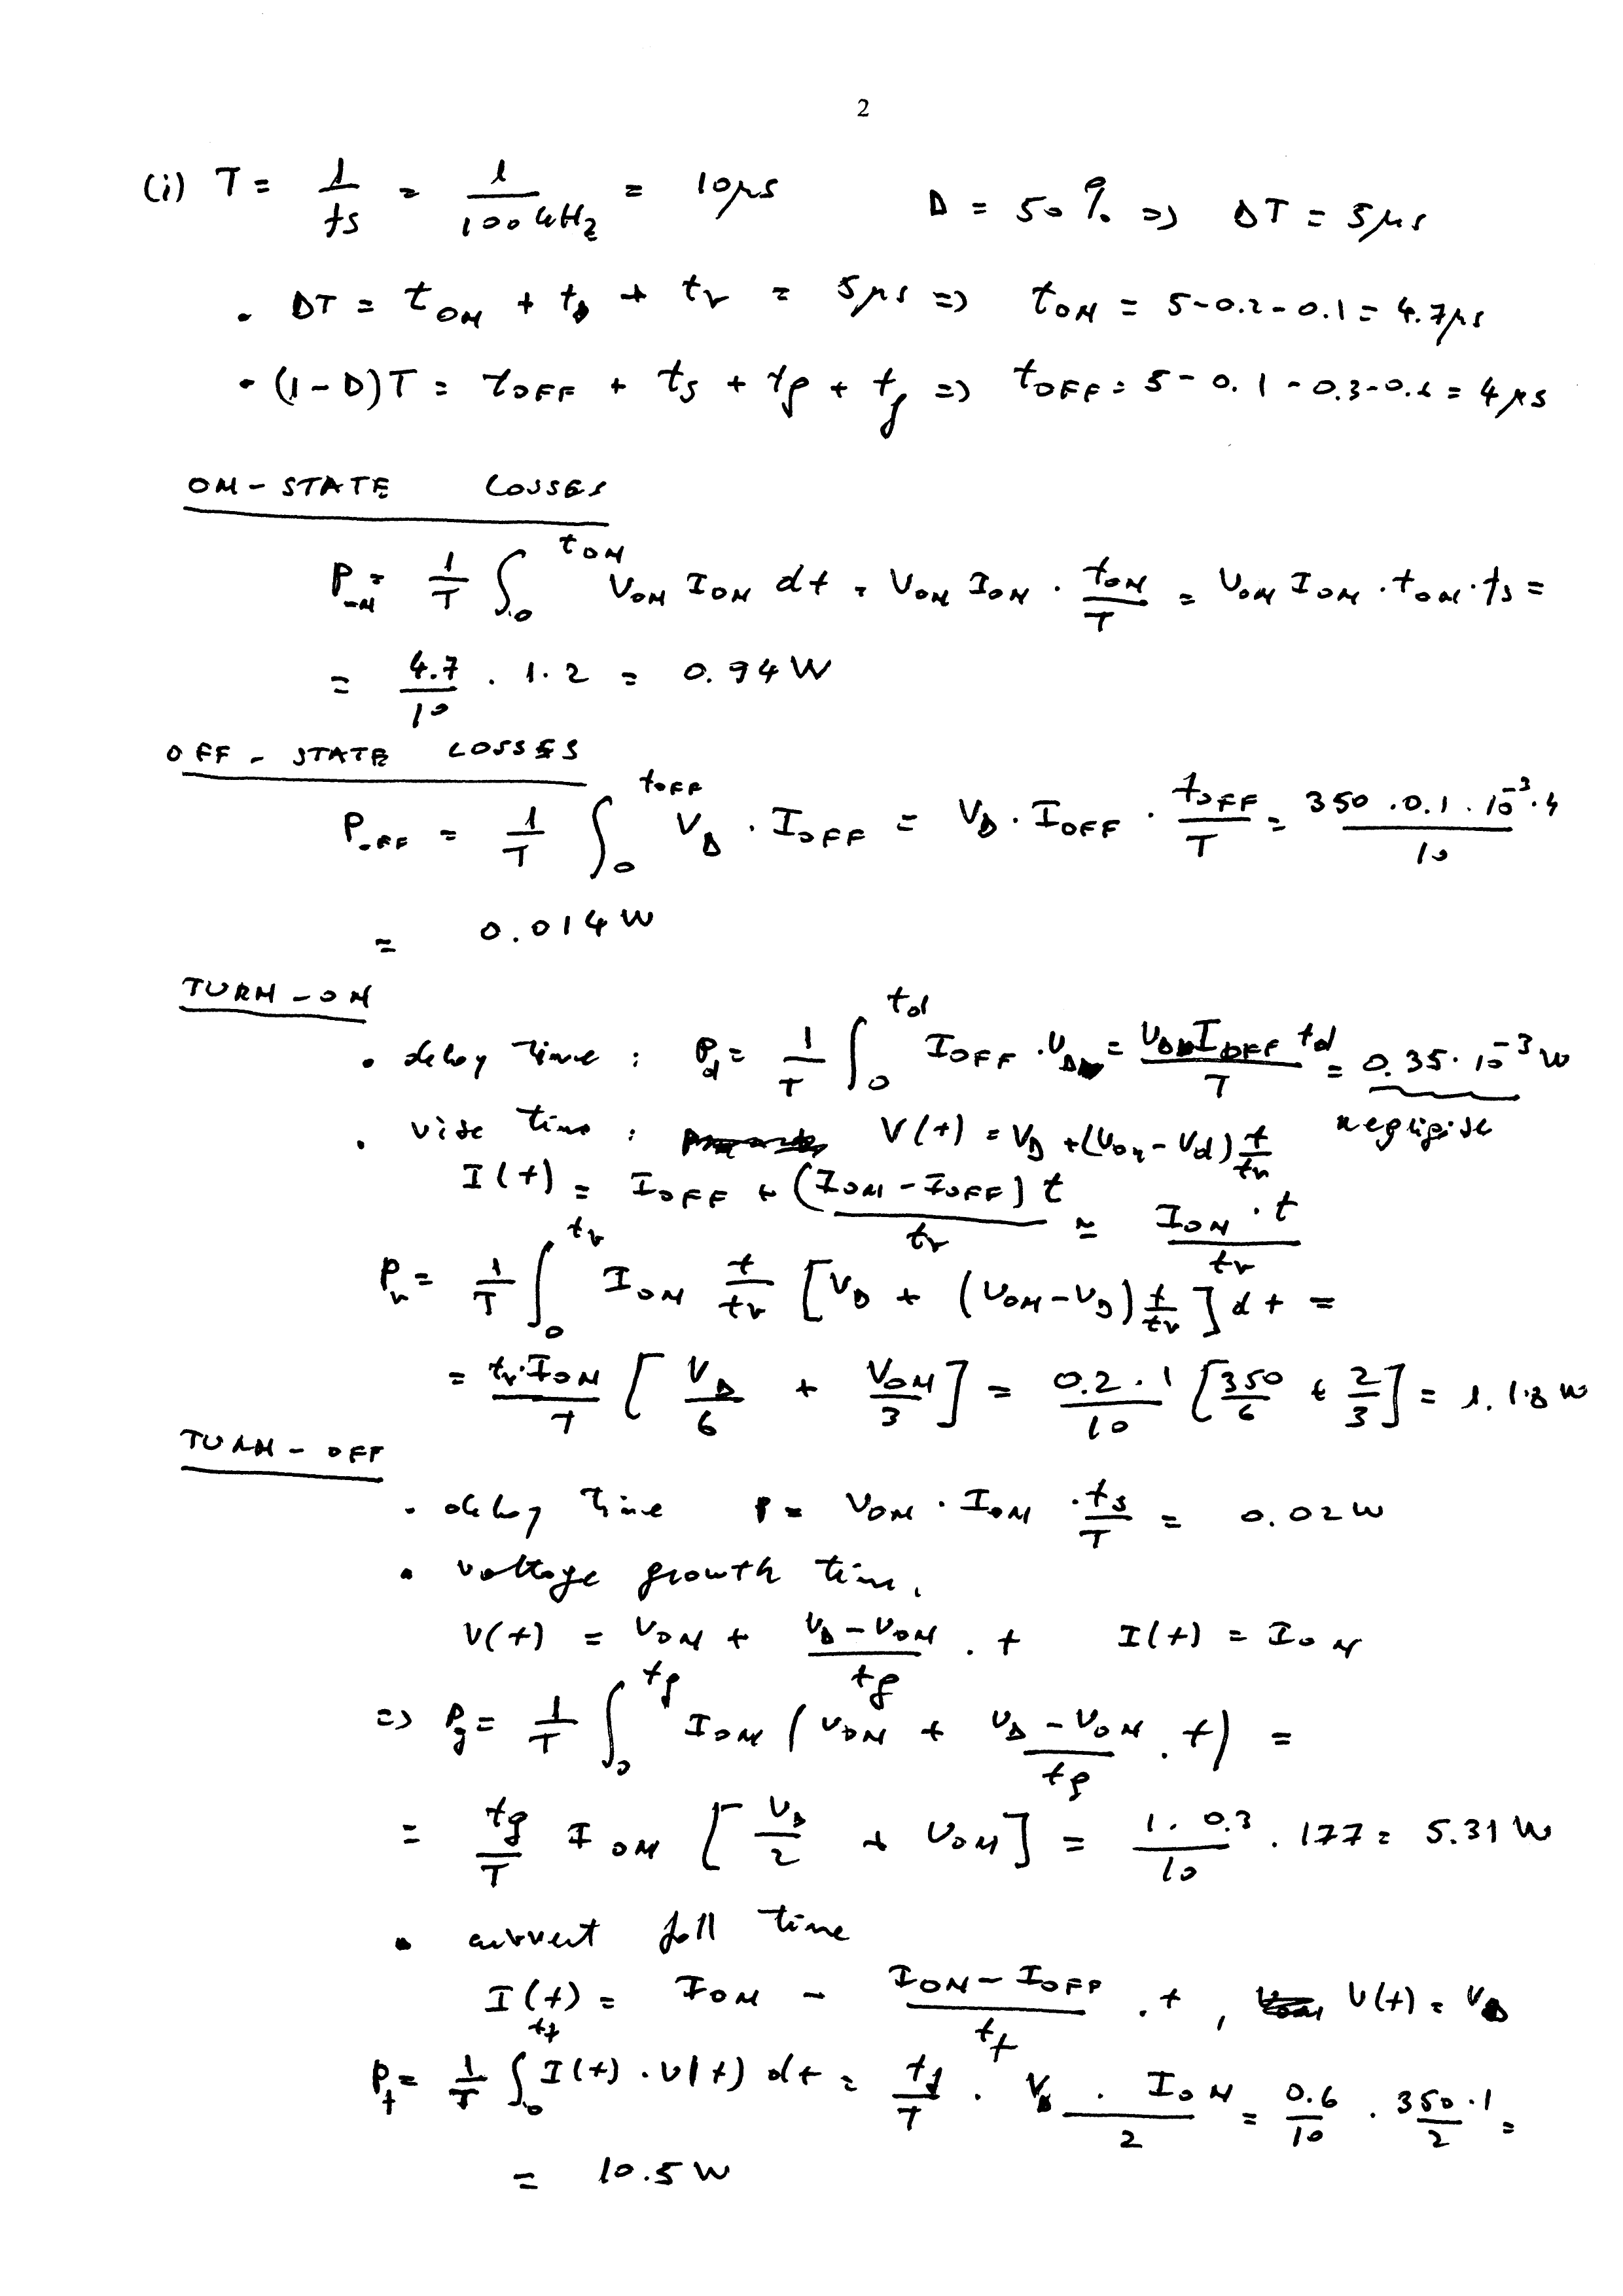 2
(i) T = 1/fs = 1/100kHz = 10μs D = 50% => DT = 5μs
• DT = tON + tD + tr = 5μs => tON = 5-0.2-0.1 = 4.7μs
• (1-D)T = tOFF + ts + tg + tf => tOFF = 5 - 0.1 - 0.3 - 0.6 = 4μs
ON-STATE LOSSES
PON = 1/T ∫0^tON VON ION dt = VON ION · tON/T = VON ION · tON · fs =
= 4.7/10 · 1·2 = 0.94W
OFF-STATE LOSSES
POFF = 1/T ∫0^tOFF VD · IOFF = VD · IOFF · tOFF/T = 350 · 0.1 · 10^-3 · 4/10
= 0.014W
TURN-ON
• delay time : Pd = 1/T ∫0^td IOFF · VD = VD IOFF td/T = 0.35 · 10^-3 W
negligible
• rise time : V(t) = VD + (VON - Vd) t/tr
I(t) = IOFF + (ION - IOFF) t/tr ≈ ION · t/tr
Pr = 1/T ∫0^tr ION t/tr [VD + (VON - VD) t/tr] dt =
= tr·ION/T [VD/6 + VON/3] = 0.2 · 1/10 [350/6 + 2/3] = 1.18 W
TURN-OFF
• delay time P = VON · ION · ts/T = 0.02W
• voltage growth time.
V(t) = VON + VD - VON/tg · t I(t) = ION
=> Pg = 1/T ∫0^tg ION (VON + VD - VON/tg · t) =
= tg/T ION [VD/2 + VON] = 1 · 0.3/10 · 177 = 5.31 W
• current fall time
I(t) = ION - ION - IOFF/tf · t , V(t) = VD
Pf = 1/T ∫0^tf I(t) · V(t) dt = tf/T · VD · ION/2 = 0.6/10 · 350 · 1/2 =
= 10.5W